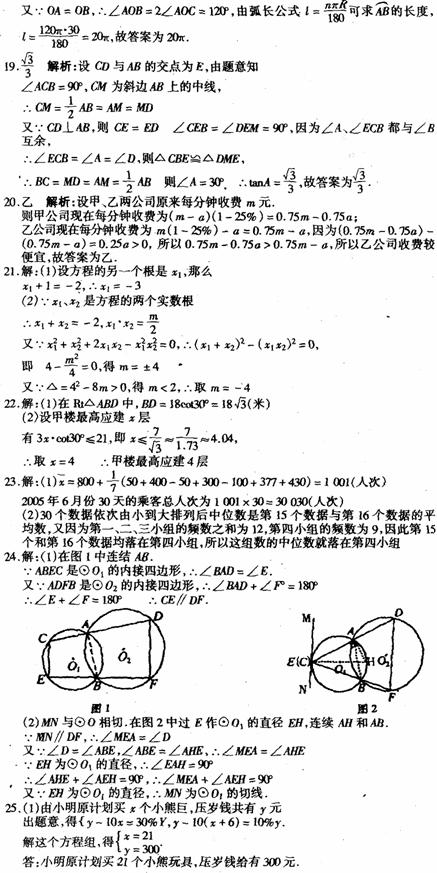 又∵OA=OB,∴∠AOB=2∠AOC=120°,由弧长公式 l=nπR/180 可求AB的长度,
l=120π·30/180=20π,故答案为20π.
19.√3/3 解析:设CD与AB的交点为E,由题意知
∠ACB=90°,CM为斜边AB上的中线,
∴CM=1/2AB=AM=MD
又∵CD⊥AB,则 CE=ED ∠CEB=∠DEM=90°,因为∠A、∠ECB都与∠B
互余,
∴∠ECB=∠A=∠D,则△CBE≌△DME,
∴BC=MD=AM=1/2AB 则∠A=30°,∴tanA=√3/3,故答案为√3/3.
20.乙 解析:设甲、乙两公司原来每分钟收费m元.
则甲公司现在每分钟收费为(m-a)(1-25%)=0.75m-0.75a;
乙公司现在每分钟收费为 m(1-25%)-a=0.75m-a,因为(0.75m-0.75a)-
(0.75m-a)=0.25a>0, 所以 0.75m-0.75a>0.75m-a,所以乙公司收费较
便宜,故答案为乙.
21.解:(1)设方程的另一个根是x₁,那么
x₁+1=-2,∴x₁=-3
(2)∵x₁、x₂是方程的两个实数根
∴x₁+x₂=-2,x₁·x₂=m/2
又∵x₁²+x₂²+2x₁x₂-x₁²x₂²=0,∴(x₁+x₂)²-(x₁x₂)²=0,
即 4-m²/4=0,得m=±4
又∵△=4²-8m>0,得m<2,∴取m=-4
22.解:(1)在Rt△ABD中,BD=18cot30°=18√3(米)
(2)设甲楼最高应建x层
有3x·cot30°≤21,即x≤7/√3≈7/1.73≈4.04,
∴取x=4 ∴甲楼最高应建4层
23.解:(1)x̄=800+1/7(50+400-50+300-100+377+430)=1 001(人次)
2005年6月份30天的乘客总人次为1 001×30=30 030(人次)
(2)30个数据依次由小到大排列后中位数是第15个数据与第16个数据的平
均数,又因为第一、二、三小组的频数之和为12,第四小组的频数为9,因此第15
个和第16个数据均落在第四小组,所以这组数的中位数就落在第四小组
24.解:(1)在图1中连结AB.
∵ABEC是⊙O₁的内接四边形,∴∠BAD=∠E.
又∵ADFB是⊙O₂的内接四边形,∴∠BAD+∠F°=180°
∴∠E+∠F=180° ∴CE∥DF.
C A D O₁ O₂ E B F
M A D E(C) H O₁ O₂ B N F
图1 图2
(2)MN与⊙O相切.在图2中过E作⊙O₁的直径EH,连续AH和AB.
∵MN∥DF,∴∠MEA=∠D
又∵∠D=∠ABE,∠ABE=∠AHE,∴∠MEA=∠AHE
∵EH为⊙O₁的直径,∴∠EAH=90°
∴∠AHE+∠AEH=90°,∴∠MEA+∠AEH=90°
又∵EH为⊙O₁的直径,∴MN为⊙O₁的切线.
25.(1)由小明原计划买x个小熊巨,压岁钱共有y元
出题意,得{y-10x=30%Y,y-10(x+6)=10%y.
解这个方程组,得{x=21 y=300.
答:小明原计划买21个小熊玩具,压岁钱给有300元.